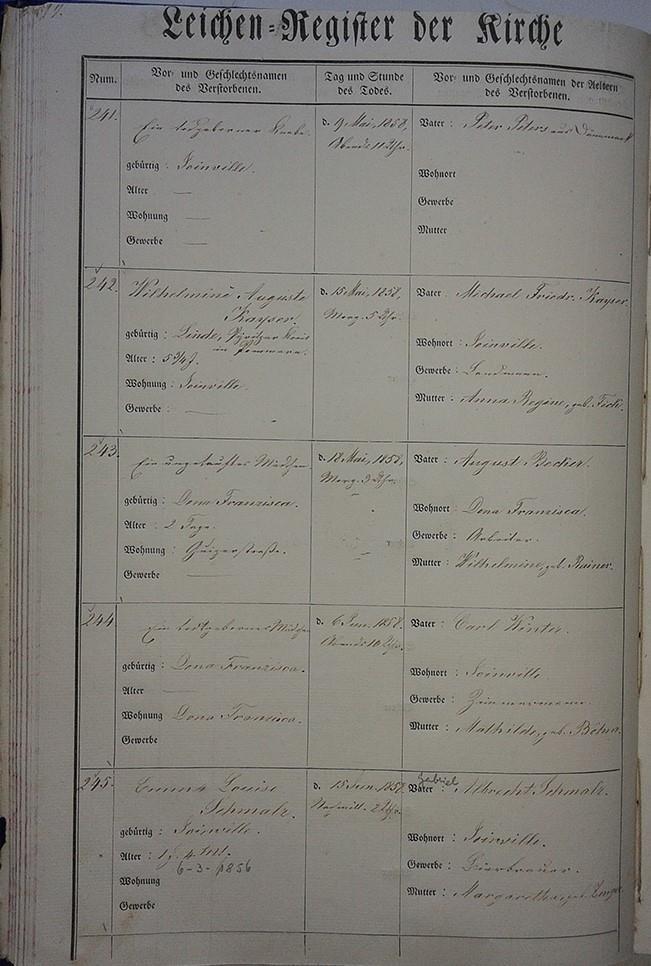 Leichen-Register der Kirche
Num.
Vor- und Geschlechtsnamen
des Verstorbenen.
Tag und Stunde
des Todes.
Vor- und Geschlechtsnamen der Aeltern
des Verstorbenen.
241.
Ein todgeborner Knabe.
gebürtig : Joinville.
Alter —
Wohnung —
Gewerbe —
d. 9 Mai, 1858,
Abends 11 Uhr.
Vater : Peter Peters aus Dänemark
Wohnort
Gewerbe
Mutter
242.
Wilhelmine Auguste
Kayser.
gebürtig : Linde, Pyritzer Kreis
in Pommern.
Alter : 5 3/4 J.
Wohnung : Joinville.
Gewerbe : —
d. 15 Mai, 1858,
Morg. 5 Uhr.
Vater : Michael Friedr. Kayser.
Wohnort : Joinville.
Gewerbe : Landmann.
Mutter : Anna Regine, geb. Fick.
243.
Ein ungetauftes Mädchen
gebürtig : Dona Franzisca.
Alter : 2 Tage.
Wohnung :
Gewerbe —
d. 18 Mai, 1858,
Morg. 3 Uhr.
Vater : August Becker.
Wohnort : Dona Franzisca.
Gewerbe : Arbeiter.
Mutter : Wilhelmine, geb. Rainer.
244
Ein todtgebornes Mädchen
gebürtig : Dona Franzisca.
Alter —
Wohnung Dona Franzisca.
Gewerbe
d. 6 Jun. 1858.
Abends 10 Uhr.
Vater : Carl Winter.
Wohnort : Joinville
Gewerbe : Zimmermann.
Mutter : Mathilde, geb.
245.
Emma Louise
Schmalz.
gebürtig : Joinville.
Alter :
6-3-1856
Wohnung
Gewerbe
d. 15 Jun. 1858
Nachmitt. 2 Uhr.
Gabriel
Vater : Albrecht Schmalz.
Wohnort : Joinville.
Gewerbe : Bierbrauer.
Mutter : Margaretha, geb.